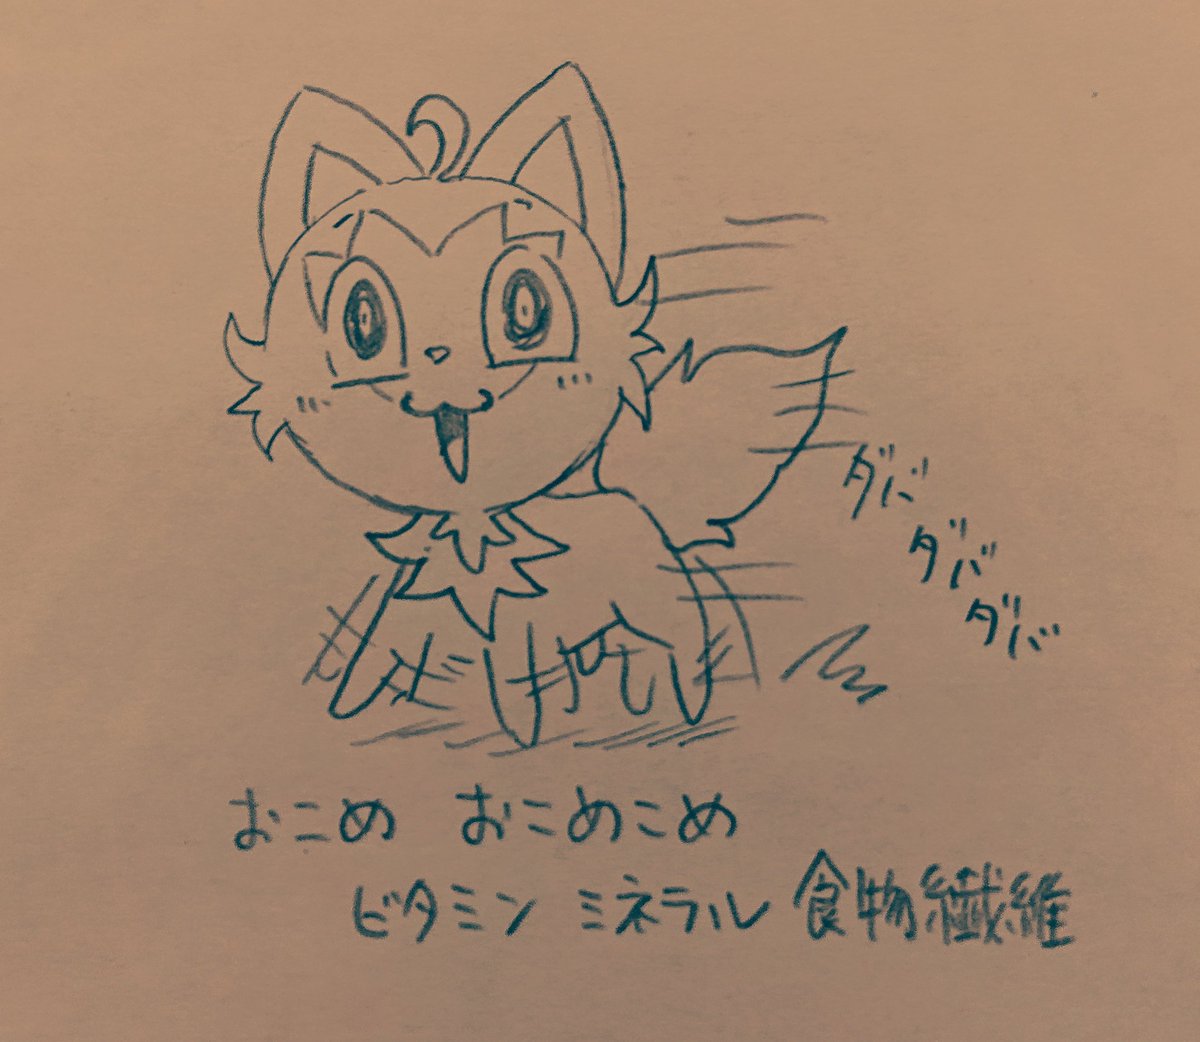 ダバ
ダバ
ダバ
おこめ おこめこめ
ビタミン ミネラル 食物繊維